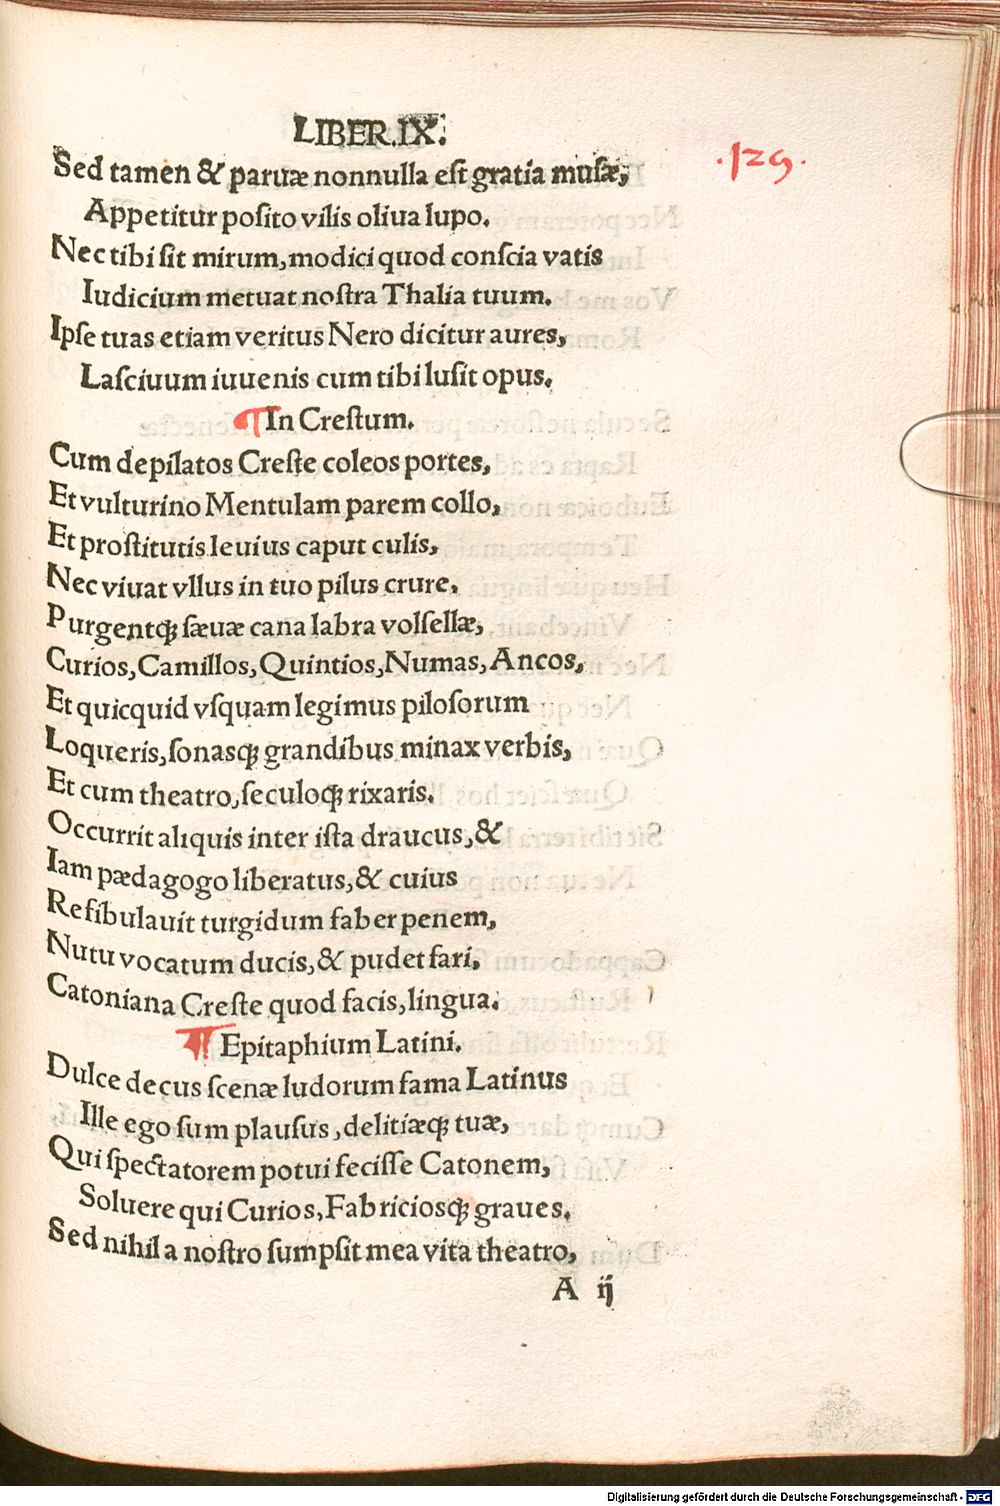 LIBER.IX.
.129.
Sed tamen & paruæ nonnulla est gratia musæ,
Appetitur posito vilis oliua lupo.
Nec tibi sit mirum,modici quod conscia vatis
Iudicium metuat nostra Thalia tuum.
Ipse tuas etiam veritus Nero dicitur aures,
Lasciuum iuuenis cum tibi lusit opus.
¶In Crestum.
Cum depilatos Creste coleos portes,
Et vulturino Mentulam parem collo,
Et prostitutis leuius caput culis,
Nec viuat vllus in tuo pilus crure,
Purgentqꝫ sæuæ cana labra volsellæ,
Curios,Camillos,Quintios,Numas,Ancos,
Et quicquid vsquam legimus pilosorum
Loqueris,sonasqꝫ grandibus minax verbis,
Et cum theatro,seculoqꝫ rixaris.
Occurrit aliquis inter ista draucus,&
Iam pædagogo liberatus,& cuius
Refibulauit turgidum faber penem,
Nutu vocatum ducis,& pudet fari,
Catoniana Creste quod facis,lingua.
¶ Epitaphium Latini.
Dulce decus scenæ ludorum fama Latinus
Ille ego sum plausus,delitiæqꝫ tuæ,
Qui spectatorem potui fecisse Catonem,
Soluere qui Curios,Fabriciosqꝫ graues.
Sed nihil a nostro sumpsit mea vita theatro,
A ij
Digitalisierung gefördert durch die Deutsche Forschungsgemeinschaft - DFG